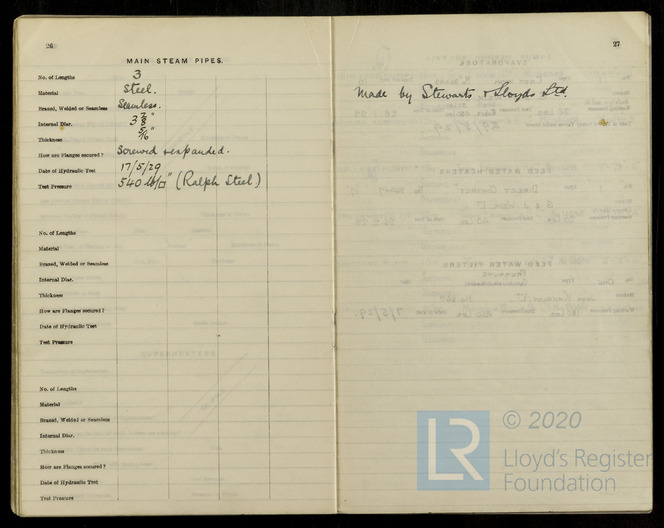 26
MAIN STEAM PIPES.
No. of Lengths 3
Material Steel.
Brazed, Welded or Seamless Seamless.
Internal Diar. 3 7/8"
Thickness 5/16"
How are Flanges secured? Screwed & expanded.
Date of Hydraulic Test 17/5/29
Test Pressure 540 lb/□" (Ralph Steel)
No. of Lengths
Material
Brazed, Welded or Seamless
Internal Diar.
Thickness
How are Flanges secured?
Date of Hydraulic Test
Test Pressure
No. of Lengths
Material
Brazed, Welded or Seamless
Internal Diar.
Thickness
How are Flanges secured?
Date of Hydraulic Test
Test Pressure
27
Made by Stewarts & Lloyds Ltd.
LR
© 2020
Lloyd's Register
Foundation